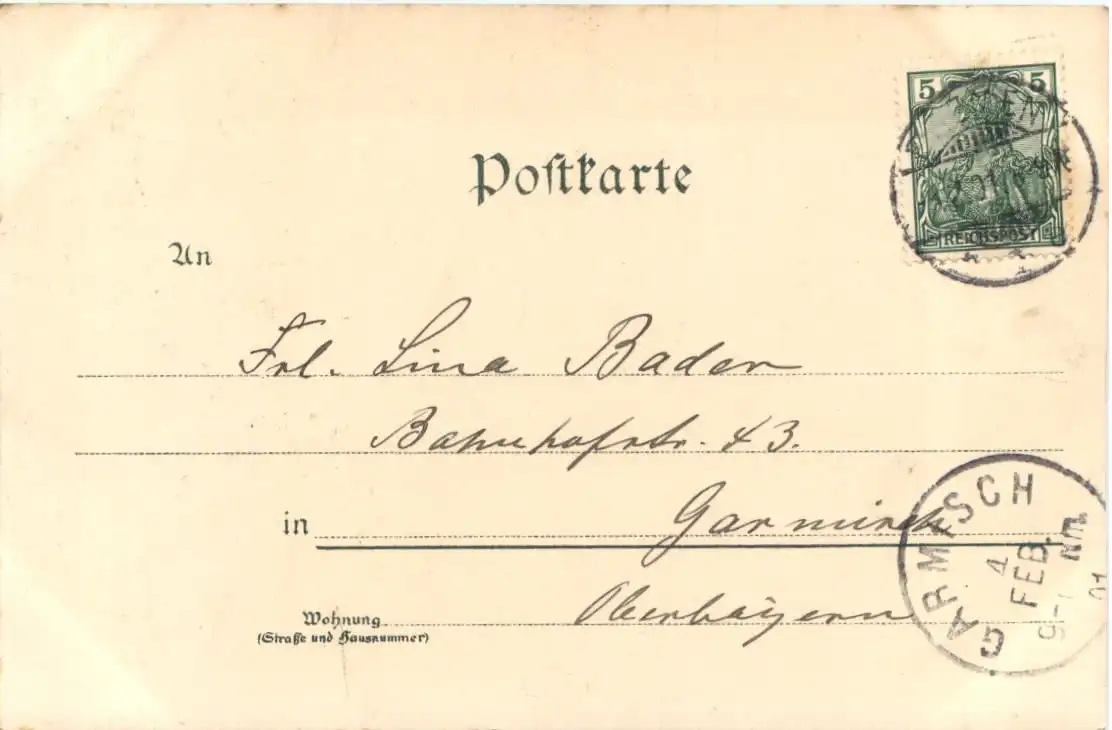 5 5
REICHSPOST
Postkarte
An
Frl. Lina Bader
Bahnhofstr. 43.
in Garmisch
Oberbayern
Wohnung
(Straße und Hausnummer)
GARMISCH
4
FEB.
Nm.
01